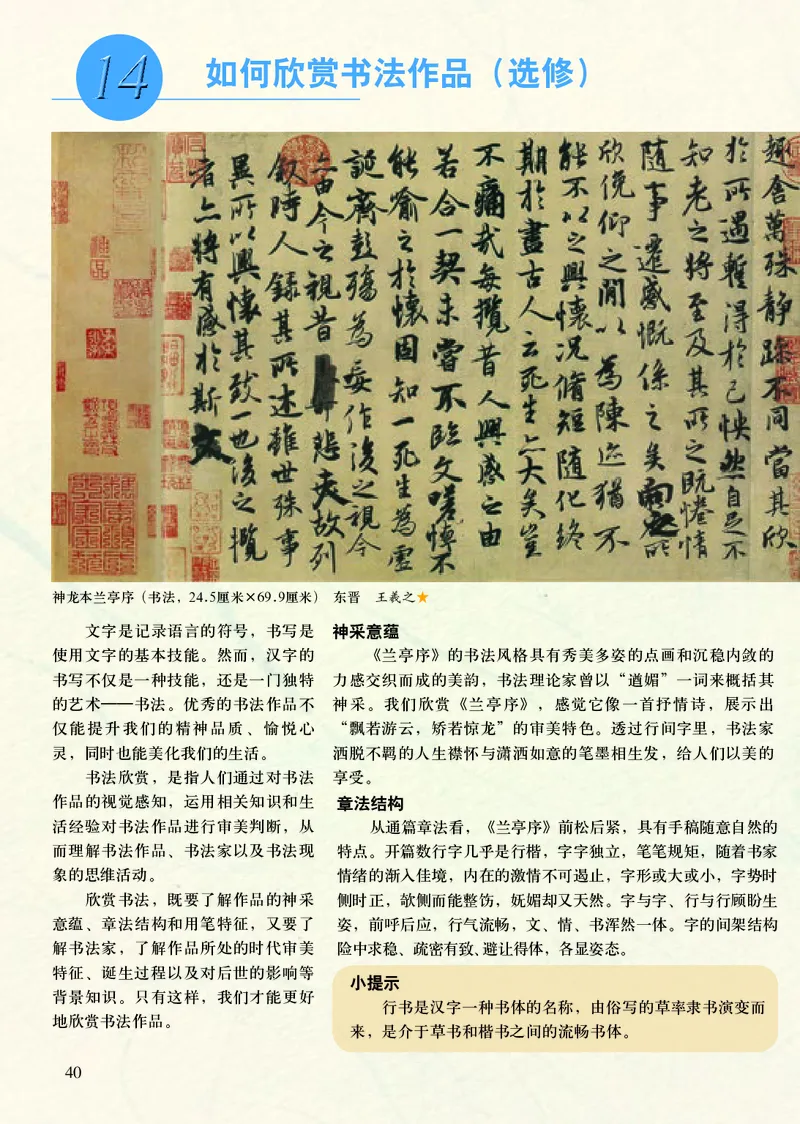 14
如何欣赏书法作品（选修）
趣舍萬殊静躁不同當其欣
於所遇蹔得於己怏然自足不
知老之將至及其所之既惓情
隨事遷感慨係之矣向之所
欣俛仰之閒以為陳迹猶不
能不以之興懷況脩短隨化終
期於盡古人云死生亦大矣豈
不痛哉每攬昔人興感之由
若合一契未嘗不臨文嗟悼不
能喻之於懷固知一死生為虛
誕齊彭殤為妄作後之視今
亦由今之視昔悲夫故列
叙時人錄其所述雖世殊事
異所以興懷其致一也後之攬
者亦將有感於斯文
神龙本兰亭序（书法，24.5厘米×69.9厘米） 东晋 王羲之★
文字是记录语言的符号，书写是
使用文字的基本技能。然而，汉字的
书写不仅是一种技能，还是一门独特
的艺术——书法。优秀的书法作品不
仅能提升我们的精神品质、愉悦心
灵，同时也能美化我们的生活。
书法欣赏，是指人们通过对书法
作品的视觉感知，运用相关知识和生
活经验对书法作品进行审美判断，从
而理解书法作品、书法家以及书法现
象的思维活动。
欣赏书法，既要了解作品的神采
意蕴、章法结构和用笔特征，又要了
解书法家，了解作品所处的时代审美
特征、诞生过程以及对后世的影响等
背景知识。只有这样，我们才能更好
地欣赏书法作品。
神采意蕴
《兰亭序》的书法风格具有秀美多姿的点画和沉稳内敛的
力感交织而成的美韵，书法理论家曾以“遒媚”一词来概括其
神采。我们欣赏《兰亭序》，感觉它像一首抒情诗，展示出
“飘若游云，矫若惊龙”的审美特色。透过行间字里，书法家
洒脱不羁的人生襟怀与潇洒如意的笔墨相生发，给人们以美的
享受。
章法结构
从通篇章法看，《兰亭序》前松后紧，具有手稿随意自然的
特点。开篇数行字几乎是行楷，字字独立，笔笔规矩，随着书家
情绪的渐入佳境，内在的激情不可遏止，字形或大或小，字势时
侧时正，欹侧而能整饬，妩媚却又天然。字与字、行与行顾盼生
姿，前呼后应，行气流畅，文、情、书浑然一体。字的间架结构
险中求稳、疏密有致、避让得体，各显姿态。
小提示
行书是汉字一种书体的名称，由俗写的草率隶书演变而
来，是介于草书和楷书之间的流畅书体。
40